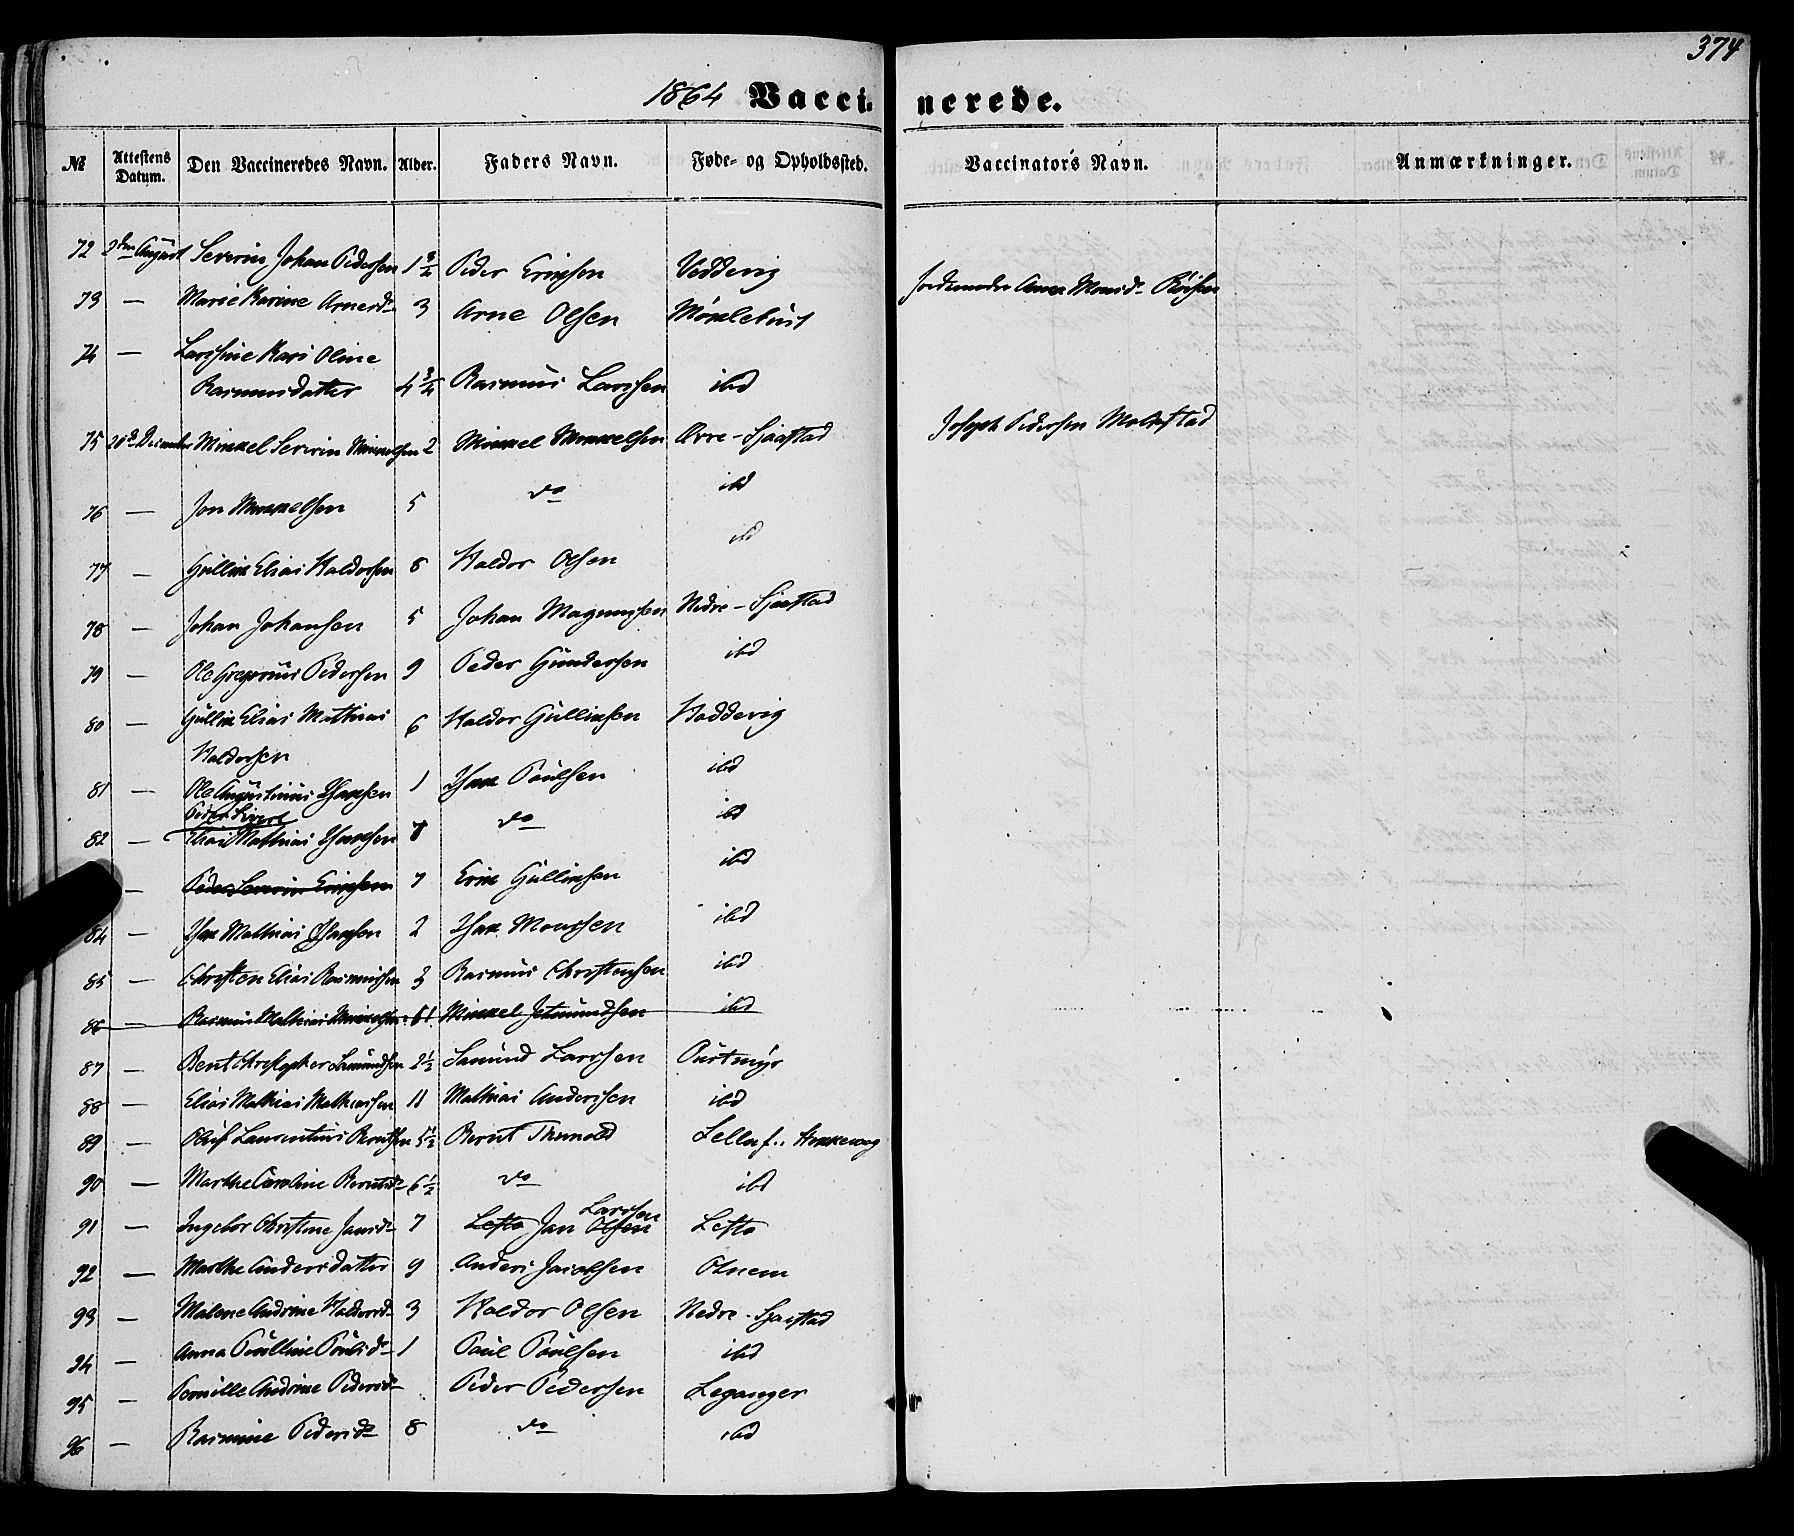 374
1864 Vaccinerede.
№ Attestens Datum. Den Vaccineredes Navn. Alder. Faders Navn. Føde- og Opholdssted. Vaccinators Navn. Anmærkninger.
72 2den August Severin Johan Pedersen 1 3/4 Peder Eriksen Veddevig Anna
73 — Marie Karine Arnesd. 3 Arne Olsen
74 — Larsine Kari Oline
Rasmusdatter 4 3/4 Rasmus Larssen ibd
75 20de December Mikkel Severin Mikkelsen 2 Mikkel Mikkelsen Øvre-Sjaastad Joseph Pedersen
76 — Jon Mikkelsen 5 do ibd
77 — Gullik Elias Haldorsen 8 Haldor Olsen ibd
78 — Johan Johansen 5 Johan Magnussen Nedre-Sjaastad
79 — Ole Gregorius Pedersen 9 Peder Gundersen ibd
80 — Gullik Elias Mathias 6 Haldor Gulliksen Haddevig
Haldorsen
81 — Ole Augustinus Isaksen 1 Isak Poulsen ibd
Peder Sivert
82 — Elias Mathias Isaksen 8 do ibd
— Peder Severin Eriksen 7 Erik Gulliksen ibd
84 — Isak Mathias Isaksen 2 Isak Monssen ibd
85 — Christen Elias Rasmussen 3 Rasmus Christensen ibd
86 — Rasmus Mathias Mikkelsen Mikkel Jetmundsen ibd
87 — Bent Christopher Samundsen 2 1/2 Samund Larssen
88 — Elias Mathias Mathiassen 11 Mathias Anderssen ibd
89 — Oluf Laurentius Berntsen 5 1/2 Bernt
90 — Marthe Caroline Berntsd. 6 1/2 do ibd
Larssen
91 — Ingebor Christine Jansd. 7 Lefto Jan Olsen Lefto
92 — Marthe Andersdatter 9 Anders Jacobsen Otnem
93 — Malene Andrine Haldorsd. 3 Haldor Olsen Nedre-Sjaastad
94 — Anna Poulline Poulsd. 1 Poul Poulsen ibd
95 — Pernille Andrine Pedersd. Peder Pedersen Leganger
96 — Rasmine Pedersd. 8 do ibd